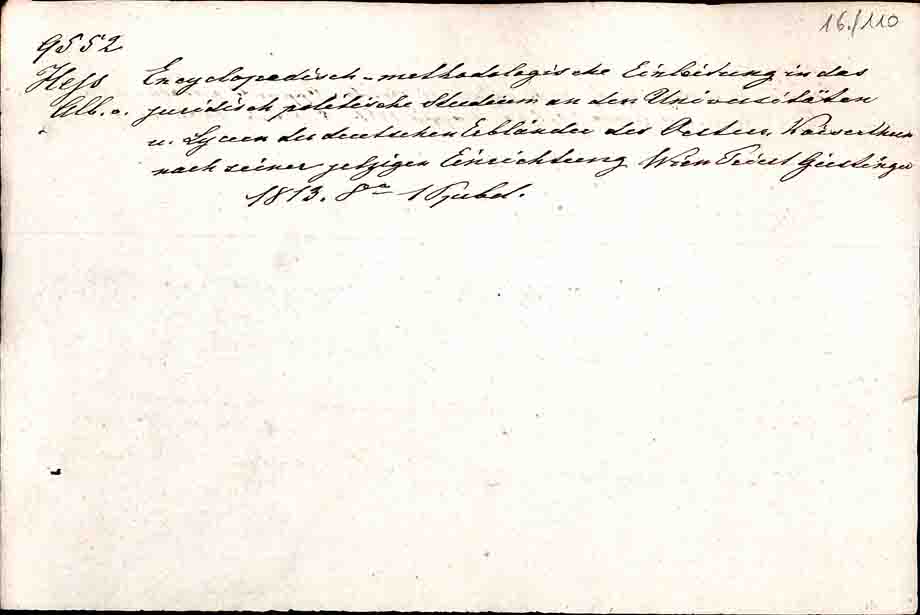 16./110
9552
Hess Encyclopædisch-methodologische Einleitung in das
Alb. v. juridisch politische Studium an den Universitäten
u. Lyceen der deutschen Erbländer des Oester. Kaiserthum
nach seiner jetzigen Einrichtung Wien Triest Geistinger
1813. 8°